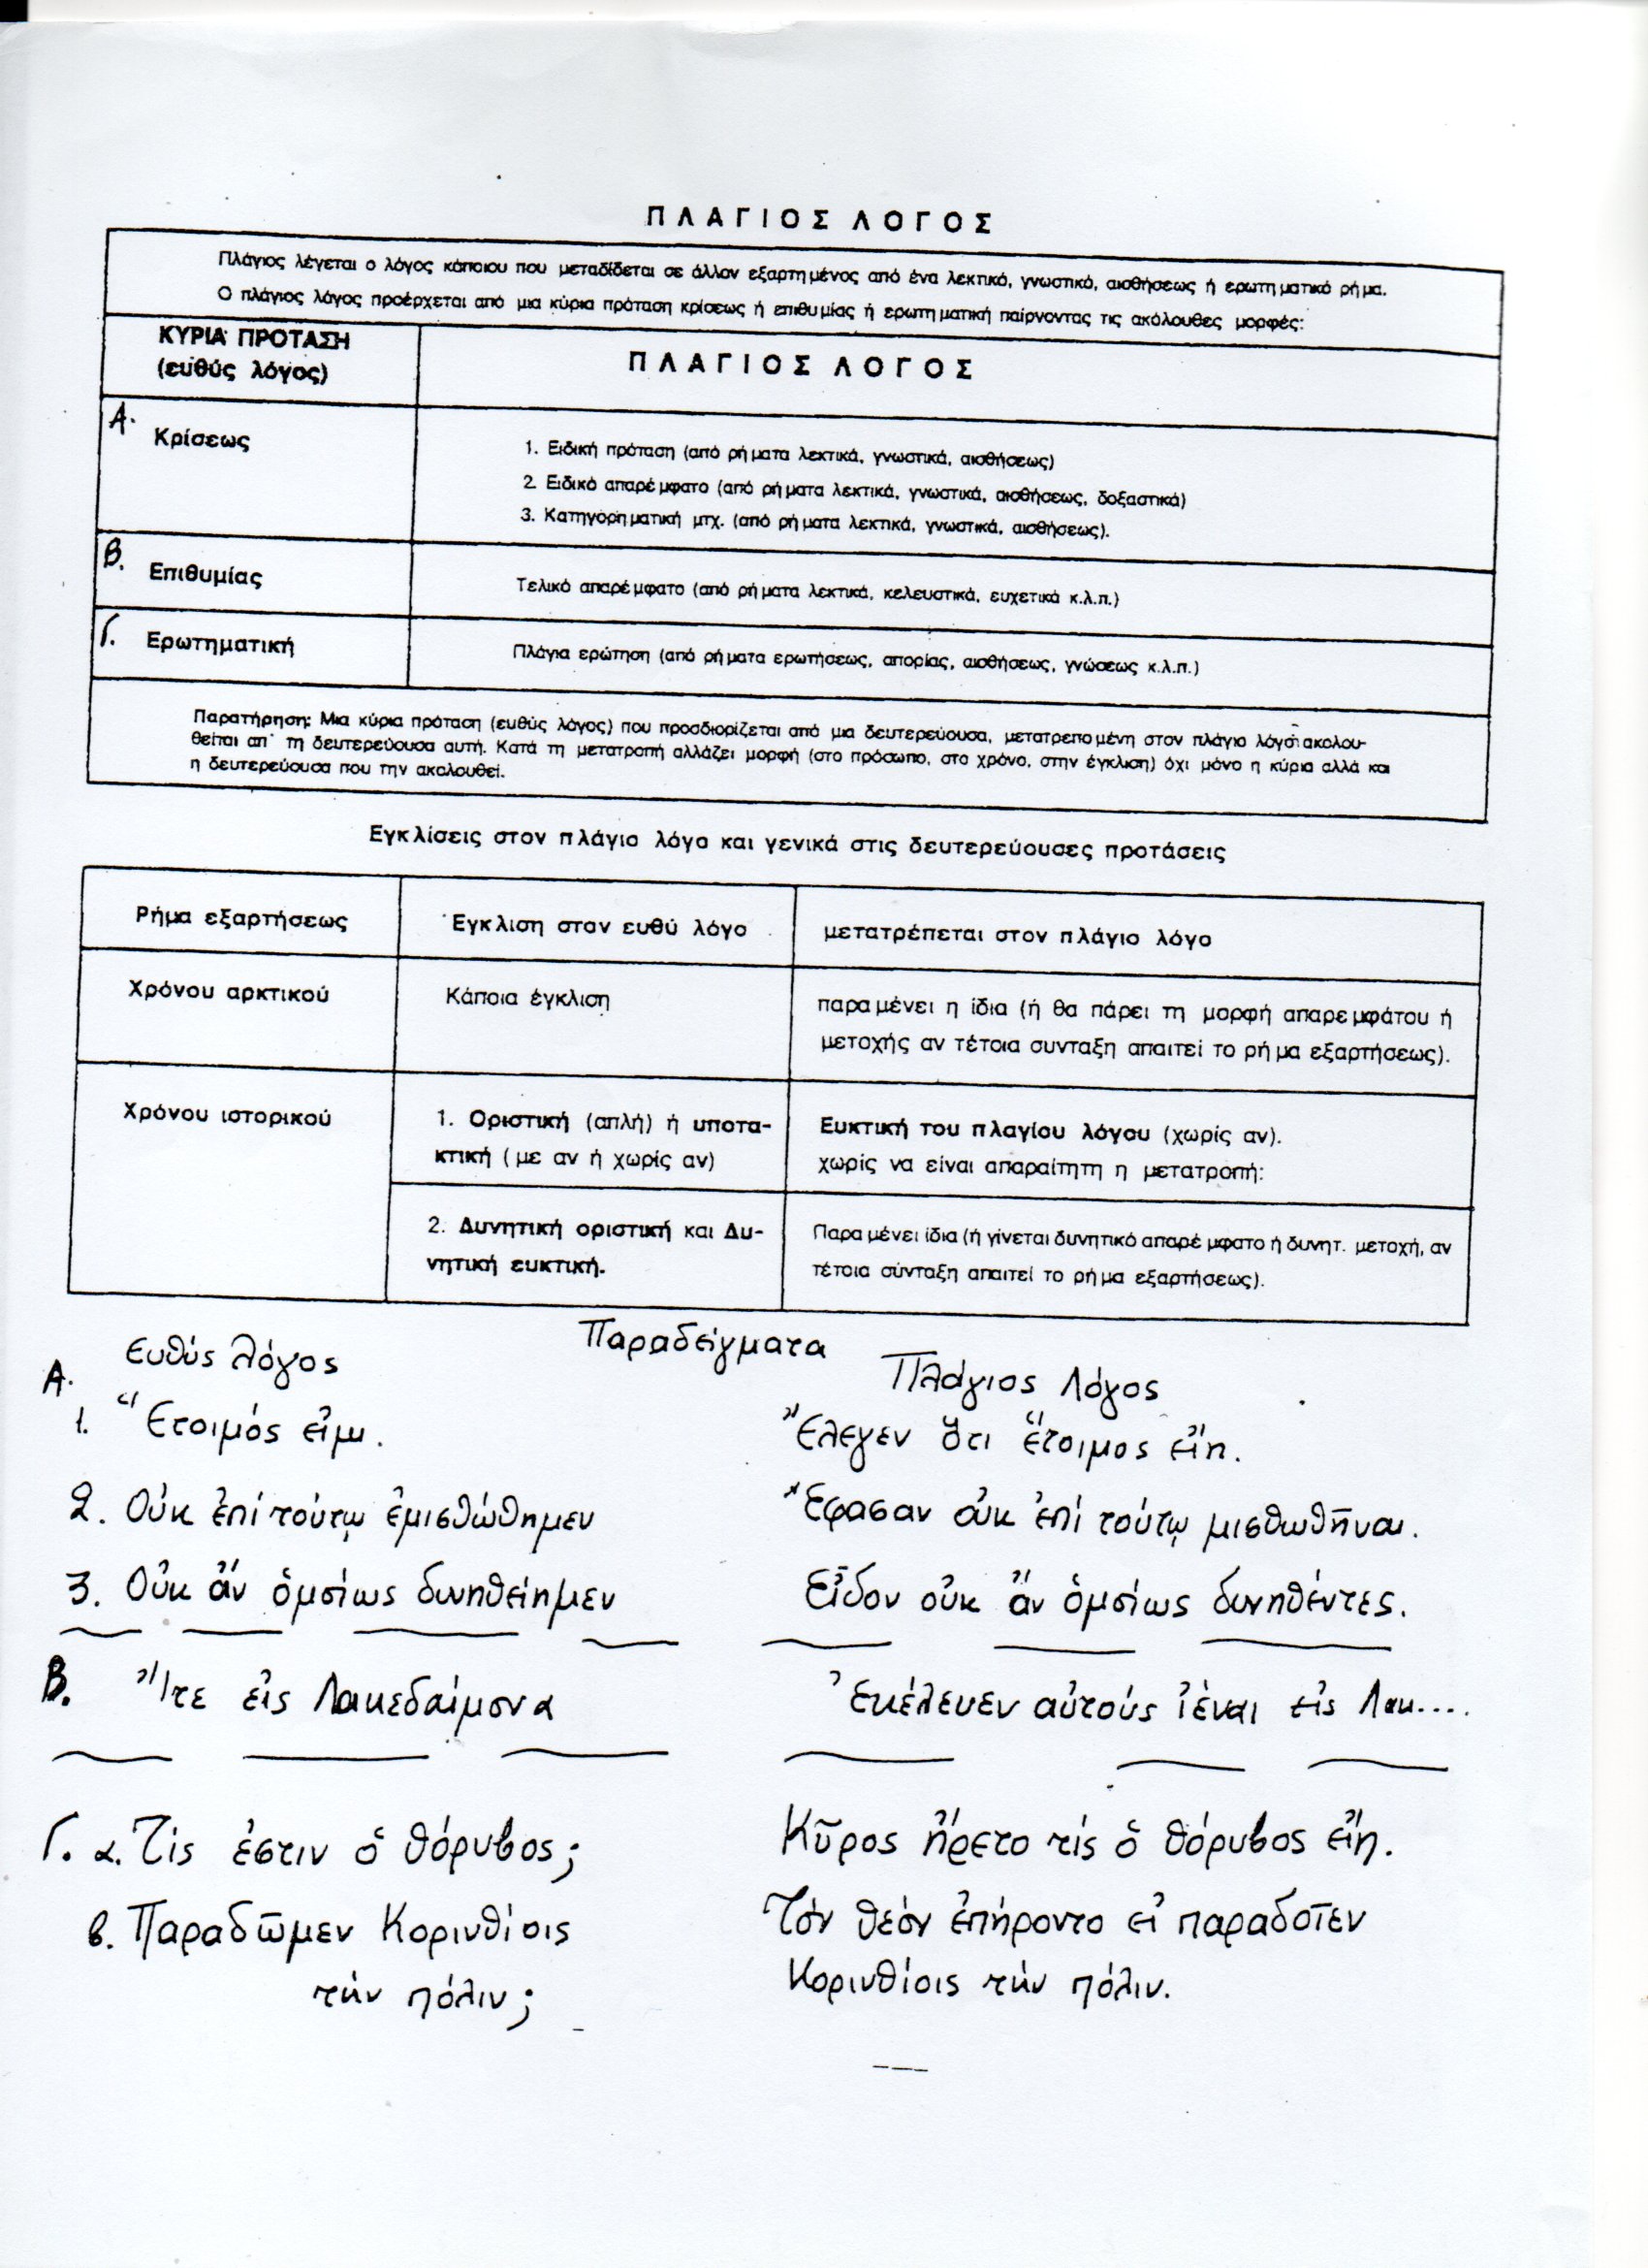 ΠΛΑΓΙΟΣ ΛΟΓΟΣ
Πλάγιος λέγεται ο λόγος κάποιου που μεταδίδεται σε άλλον εξαρτημένος από ένα λεκτικό, γνωστικό, αισθήσεως ή ερωτηματικό ρήμα.
Ο πλάγιος λόγος προέρχεται από μια κύρια πρόταση κρίσεως ή επιθυμίας ή ερωτηματική παίρνοντας τις ακόλουθες μορφές:
ΚΥΡΙΑ ΠΡΟΤΑΣΗ
(ευθύς λόγος)
ΠΛΑΓΙΟΣ ΛΟΓΟΣ
Α. Κρίσεως
1. Ειδική πρόταση (από ρήματα λεκτικά, γνωστικά, αισθήσεως)
2. Ειδικό απαρέμφατο (από ρήματα λεκτικά, γνωστικά, αισθήσεως, δοξαστικά)
3. Κατηγορηματική μτχ. (από ρήματα λεκτικά, γνωστικά, αισθήσεως).
Β. Επιθυμίας
Τελικό απαρέμφατο (από ρήματα λεκτικά, κελευστικά, ευχετικά κ.λ.π.)
Γ. Ερωτηματική
Πλάγια ερώτηση (από ρήματα ερωτήσεως, απορίας, αισθήσεως, γνώσεως κ.λ.π.)
Παρατήρηση: Μια κύρια πρόταση (ευθύς λόγος) που προσδιορίζεται από μια δευτερεύουσα, μετατρεπομένη στον πλάγιο λόγο ακολου-
θείται απ' τη δευτερεύουσα αυτή. Κατά τη μετατροπή αλλάζει μορφή (στο πρόσωπο, στο χρόνο, στην έγκλιση) όχι μόνο η κύρια αλλά και
η δευτερεύουσα που την ακολουθεί.
Εγκλίσεις στον πλάγιο λόγο και γενικά στις δευτερεύουσες προτάσεις
Ρήμα εξαρτήσεως
Έγκλιση στον ευθύ λόγο
μετατρέπεται στον πλάγιο λόγο
Χρόνου αρκτικού
Κάποια έγκλιση
παραμένει η ίδια (ή θα πάρει τη μορφή απαρεμφάτου ή
μετοχής αν τέτοια συνταξη απαιτεί το ρήμα εξαρτήσεως).
Χρόνου ιστορικού
1. Οριστική (απλή) ή υποτα-
κτική (με αν ή χωρίς αν)
Ευκτική του πλαγίου λόγου (χωρίς αν).
χωρίς να είναι απαραίτητη η μετατροπή:
2. Δυνητική οριστική και Δυ-
νητική ευκτική.
Παραμένει ίδια (ή γίνεται δυνητικό απαρέμφατο ή δυνητ. μετοχή, αν
τέτοια σύνταξη απαιτεί το ρήμα εξαρτήσεως).
Παραδείγματα
Α. Ευθύς λόγος
Πλάγιος Λόγος
1. Ἕτοιμός εἰμι.
Ἔλεγεν ὅτι ἕτοιμος εἴη.
2. Οὐκ ἐπί τούτῳ ἐμισθώθημεν
Ἔφασαν οὐκ ἐπί τούτῳ μισθωθῆναι.
3. Οὐκ ἄν ὁμοίως δυνηθείημεν
Εἶδον οὐκ ἄν ὁμοίως δυνηθέντες.
Β. Ἴτε εἰς Λακεδαίμονα
Ἐκέλευεν αὐτούς ἰέναι εἰς Λακ....
Γ. α. Τίς ἐστιν ὁ θόρυβος;
Κῦρος ἤρετο τίς ὁ θόρυβος εἴη.
β. Παραδῶμεν Κορινθίοις
τήν πόλιν;
Τόν θεόν ἐπήροντο εἰ παραδοῖεν
Κορινθίοις τήν πόλιν.